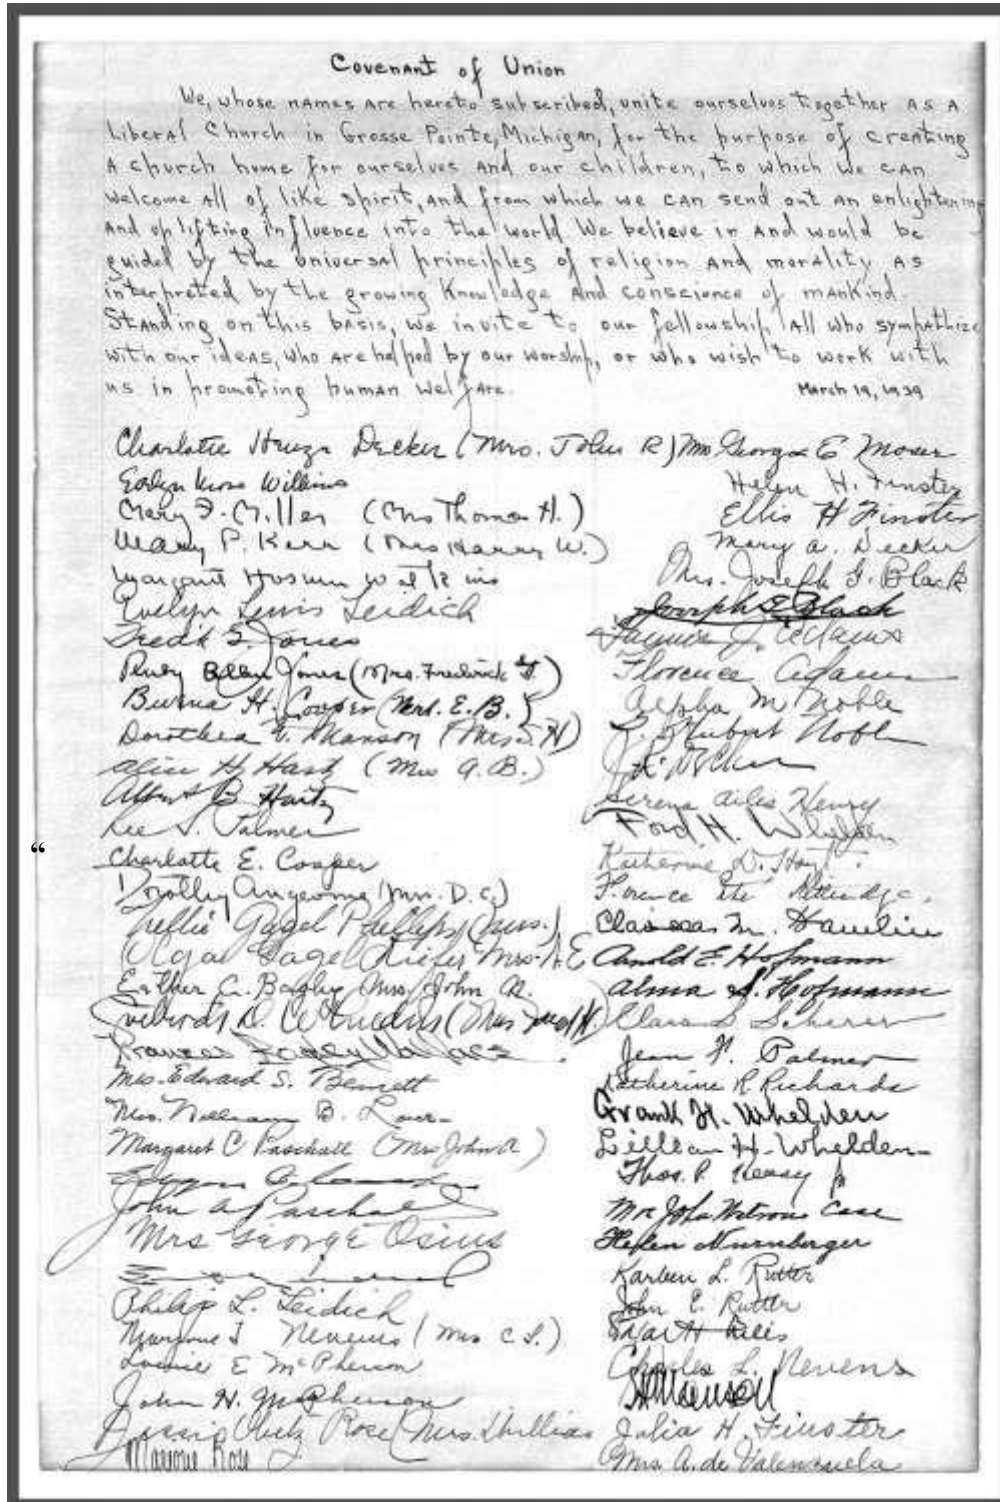 Covenant of Union
We, whose names are hereto subscribed, unite ourselves together as a
Liberal Church in Grosse Pointe, Michigan, for the purpose of creating
a church home for ourselves and our children, to which we can
welcome all of like spirit, and from which we can send out an enlightening
and uplifting influence into the world. We believe in and would be
guided by the universal principles of religion and morality as
interpreted by the growing knowledge and conscience of mankind.
Standing on this basis, we invite to our fellowship, all who sympathize
with our ideas, who are helped by our worship, or who wish to work with
us in promoting human welfare.
March 19, 1939
Charlotte Decker (Mrs. John R)
Wilkins
Mary F. Miller (Mrs Thomas H.)
Mary P. Kerr (Mrs Harry W.)
Margaret
Evelyn Lewis Leidich
Fredk G. Jones
Jones (Mrs. Frederick G.)
H. Cooper (Mrs. E. B.)
Dorothea T. Manson (Mrs. S. H)
Alice H. Hartz (Mrs A. B.)
Albert B Hartz
Lee S. Palmer
“
Charlotte E. Cooper
Dorothy (Mrs. D. C.)
Nellie Gagel Phillips (Mrs.)
Olga Gagel Kiefer Mrs. A. E
Esther G. Bagley Mrs John N.
Frances Bagley Wallace
Mrs. Edward S. Bennett
Mrs. William B.
Margaret C Paschall (Mrs John A)
John A Paschall
Mrs George Osius
Philip L. Leidich
Nevens (Mrs C L.)
Louise E McPherson
John H. McPherson
Rose (Mrs.
Marjorie Rose
Mrs George E Moser
Helen H. Finster
Ellis H Finster
Mary A. Decker
Mrs. Joseph G. Black
Joseph G Black
J. Adams
Florence Adams
Alpha M Noble
Hubert Noble
Serena Ailes Henry
Ford H. Whelden
Katherine D. Hoyt
Florence
M. Hamlin
Arnold E. Hofmann
Alma S. Hofmann
Clara S Scherer
Jean F. Palmer
Katherine R. Richards
Grant H. Whelden
Lillian H. Whelden
Thos. P. Jr
Mrs John Watrous Case
Helen Nurnberger
L. Rutter
John E. Rutter
Ailes
Charles L. Nevens
SH Manson
Julia H. Finster
Mrs A. de Valenzuela